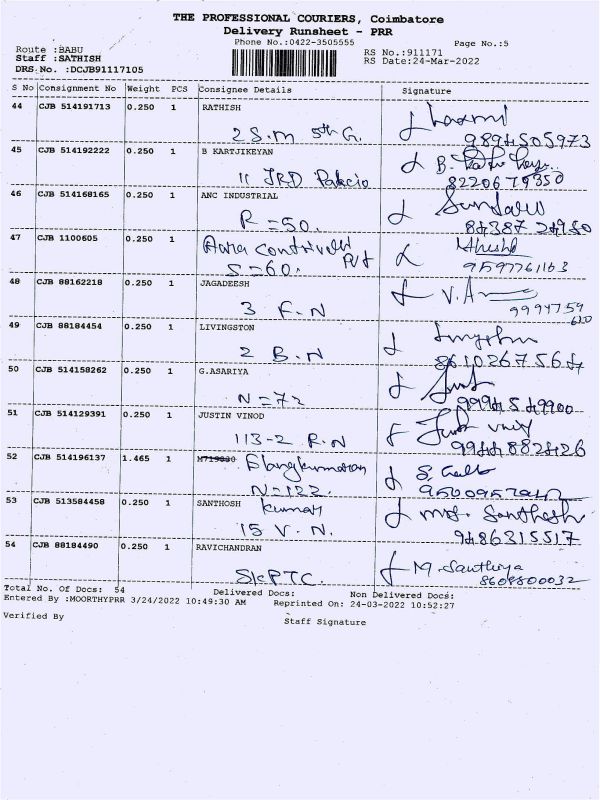 THE PROFESSIONAL COURIERS, Coimbatore
Delivery Runsheet - PRR
Phone No.:0422-3505555 Page No.:5
Route :BABU RS No.:911171
Staff :SATHISH RS Date:24-Mar-2022
DRS.No. :DCJB91117105
S No Consignment No Weight PCS Consignee Details Signature
44 CJB 514191713 0.250 1 RATHISH Laxmi
2 S.M 5th G. 9894505973
45 CJB 514192222 0.250 1 B KARTJIKEYAN B.
11 JRD Palacio 8220679350
46 CJB 514168165 0.250 1 ANC INDUSTRIAL
R=50.
47 CJB 1100605 0.250 1
S=60. 9597761163
48 CJB 88162218 0.250 1 JAGADEESH V.
3 F.N 9994759
49 CJB 88184454 0.250 1 LIVINGSTON
2 B.N
50 CJB 514158262 0.250 1 G.ASARIYA
N=72
51 CJB 514129391 0.250 1 JUSTIN VINOD
113-2 R.N 9944882426
52 CJB 514196137 1.465 1 M719830 Elangkumaran
N=122.
53 CJB 513584458 0.250 1 SANTHOSH kumar Santhosh
15 V.N. 9486315517
54 CJB 88184490 0.250 1 RAVICHANDRAN M. Santhiya
SKPTC. 8608800032
Total No. Of Docs: 54 Delivered Docs: Non Delivered Docs:
Entered By :MOORTHYPRR 3/24/2022 10:49:30 AM Reprinted On: 24-03-2022 10:52:27
Verified By
Staff Signature